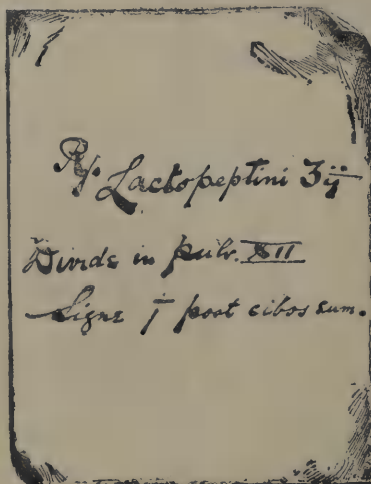 Rx. Lactopeptini ʒij
Divide in pulv. XII
Signe j post cibos sum.